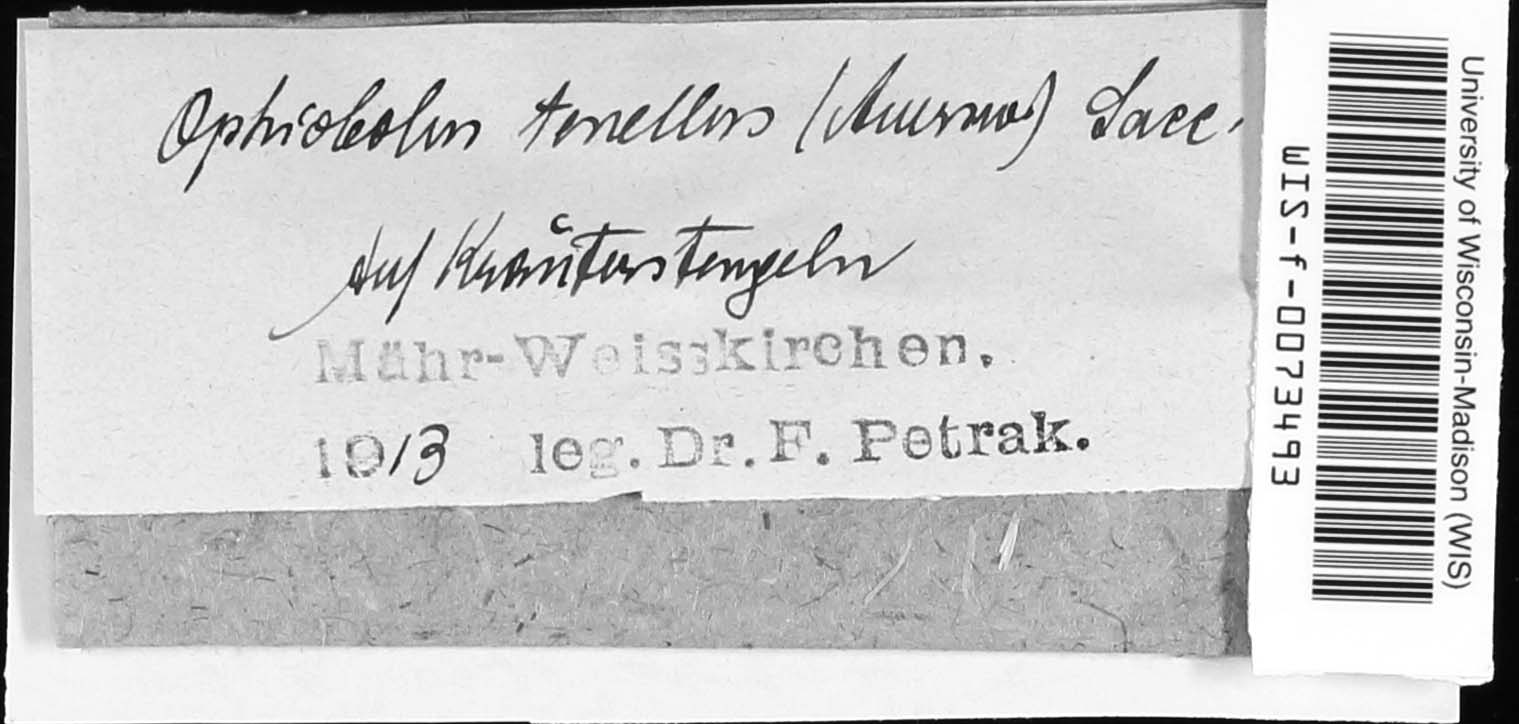 Ophiobolus tenellus (Auersw.) Sacc.
Auf Kräuterstengeln
Mähr-Weisskirchen.
1913 leg. Dr. F. Petrak.
University of Wisconsin-Madison (WIS)
WIS-f-0073493